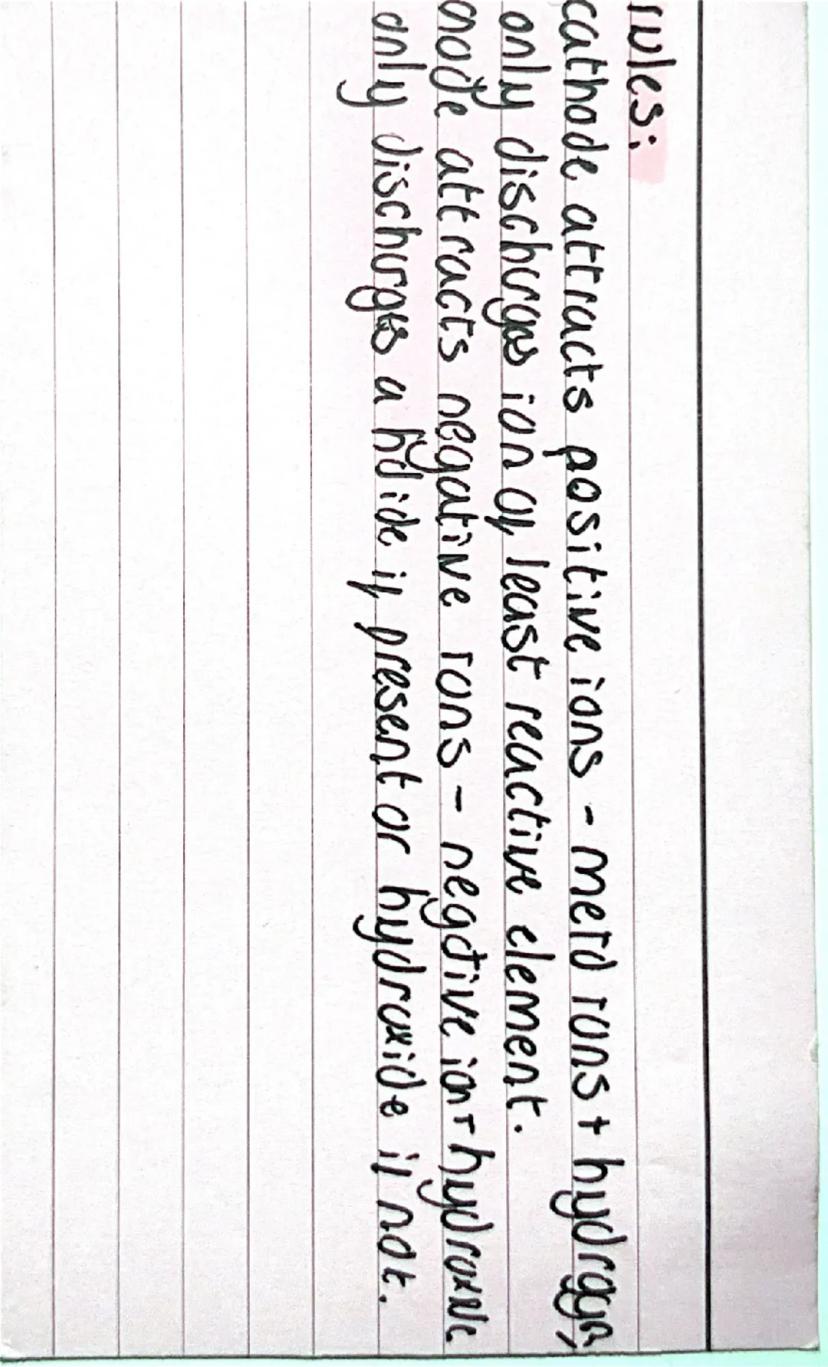 rules:
cathode attracts positive ions - metal ions + hydrogen,
only discharges ion of least reactive element.
anode attracts negative ions - negative ion + hydroxide
only discharges a halide if present or hydroxide if not.